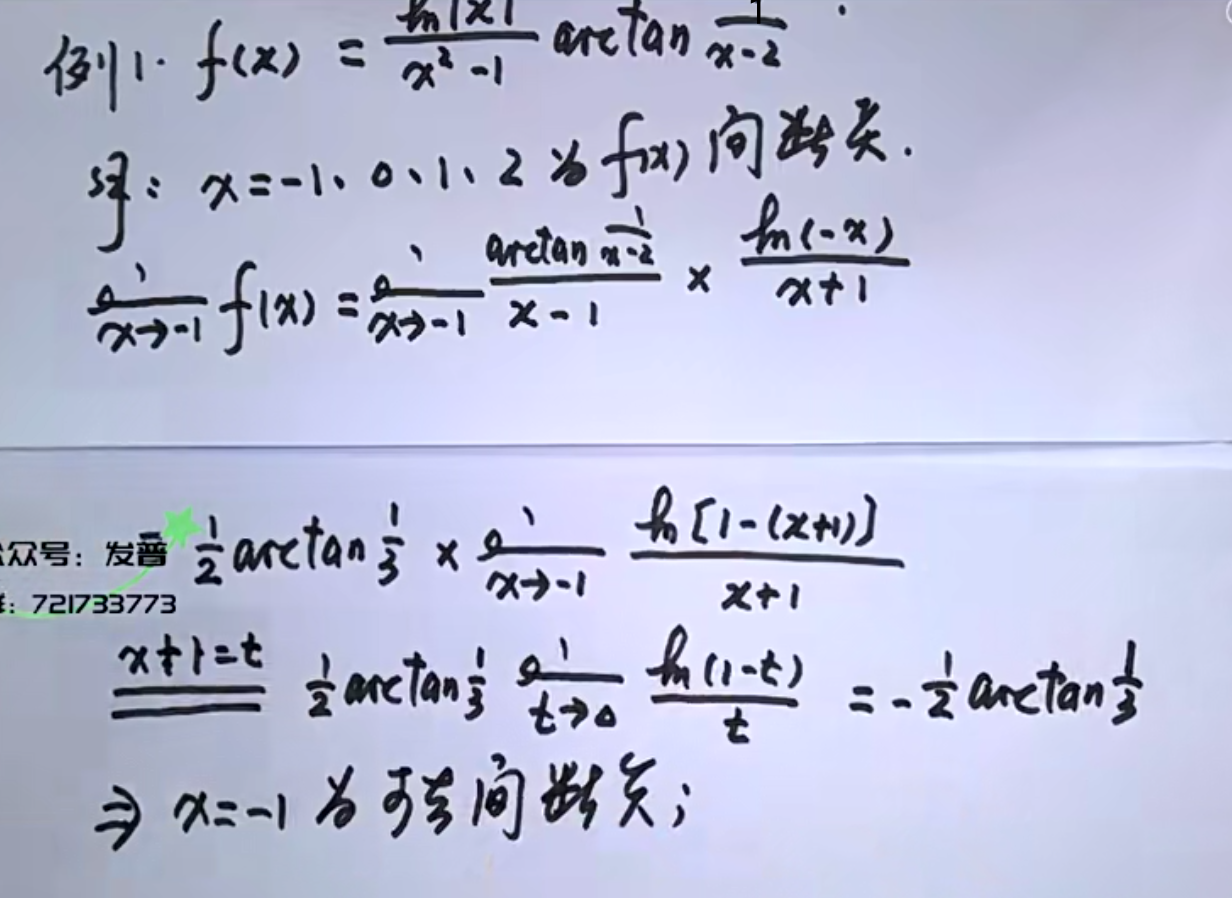 例1. f(x) = ln|x| / (x² - 1) arctan 1/(x-2)
解: x = -1、0、1、2 为 f(x) 间断点.
lim x→-1 f(x) = lim x→-1 (arctan 1/(x-2)) / (x-1) × ln(-x) / (x+1)
= 1/2 arctan 1/3 × lim x→-1 ln[1-(x+1)] / (x+1)
众号: 发普
: 721733773
x+1=t 1/2 arctan 1/3 lim t→0 ln(1-t) / t = -1/2 arctan 1/3
⇒ x=-1 为可去间断点;